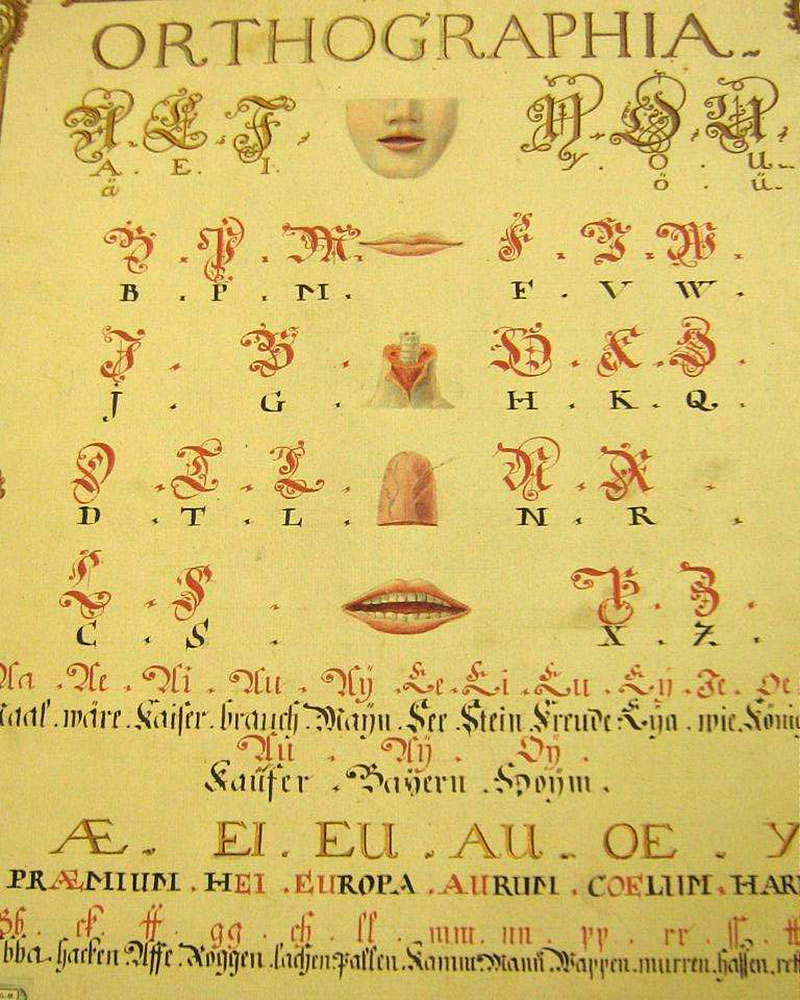 ORTHOGRAPHIA
A. E. I. Y. O. U.
A. E. I. y. O. U.
å ő . ű.
B . P . M . F . V . W .
B . P . M . F . V . W .
J . G . H . K . Q .
J . G . H . K . Q .
D . T . L . N . R .
D . T . L . N . R .
C . S . X . Z .
C . S . X . Z .
Aa . Ae . Ai . Au . Aÿ . Ee . Ei . Eu . Eÿ . Ie . Oe
wäre . Kaiser . brauch . Maÿn . See . Stein . Freude . wie . König
Aü . Aÿ . Oÿ .
Kaüfer . Baÿern . Spoÿm .
Æ . EI . EU . AU . OE . Y
PRÆMIUM . HEI . EUROPA . AURUM . COELUM . HAR
bb . ck . ff . gg . ch . ll . mm . nn . pp . rr . ss . tt
hacken . Affe . Roggen . lachen . fallen . Kamm . Mann . Wappen . murren . hassen